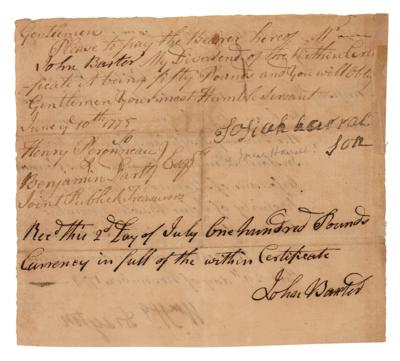 Gentlemen
Please to pay the Bearer hereof Mr
John Baxter My Dividend of the within Certi
ficate it being fifty Pounds and you will oblige
Gentlemen Your most Humble Servant
June 10th 1775
Josiah
Son
Henry Peronneau
Benjamin Esqrs
Joint Publick Treasurers
Recd this 2d Day of July One hundred Pounds
Currency in full of the within Certificate
John Baxter